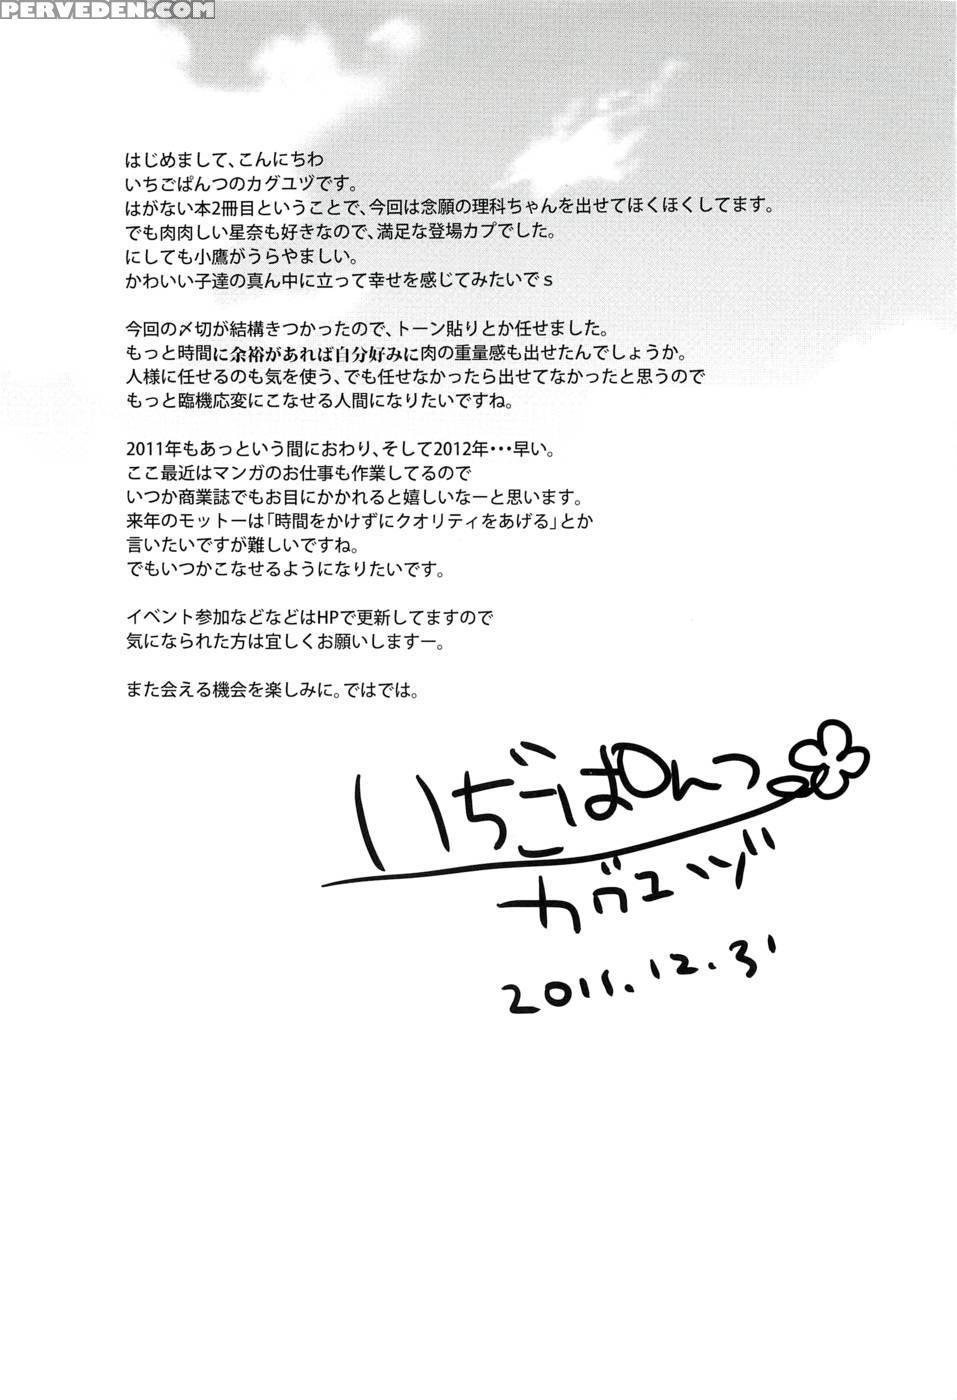 PERVEDEN.COM
はじめまして、こんにちわ
いちごぱんつのカグユヅです。
はがない本2冊目ということで、今回は念願の理科ちゃんを出せてほくほくしてます。
でも肉肉しい星奈も好きなので、満足な登場カプでした。
にしても小鷹がうらやましい。
かわいい子達の真ん中に立って幸せを感じてみたいでｓ
今回の〆切が結構きつかったので、トーン貼りとか任せました。
もっと時間に余裕があれば自分好みに肉の重量感も出せたんでしょうか。
人様に任せるのも気を使う、でも任せなかったら出せてなかったと思うので
もっと臨機応変にこなせる人間になりたいですね。
2011年もあっという間におわり、そして2012年・・・早い。
ここ最近はマンガのお仕事も作業してるので
いつか商業誌でもお目にかかれると嬉しいなーと思います。
来年のモットーは「時間をかけずにクオリティをあげる」とか
言いたいですが難しいですね。
でもいつかこなせるようになりたいです。
イベント参加などなどはHPで更新してますので
気になられた方は宜しくお願いしますー。
また会える機会を楽しみに。ではでは。
いちごぱんつ
カグユヅ
2011.12.31